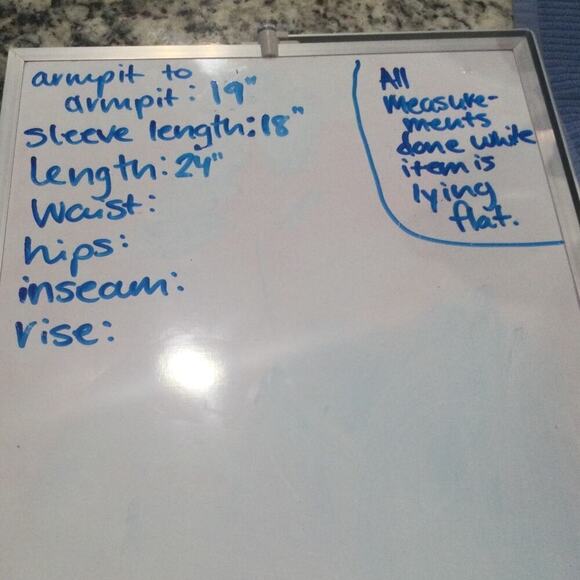 armpit to
armpit: 19"
sleeve length: 18"
Length: 24"
Waist:
hips:
inseam:
rise:
All
measure-
ments
done while
item is
lying
flat.